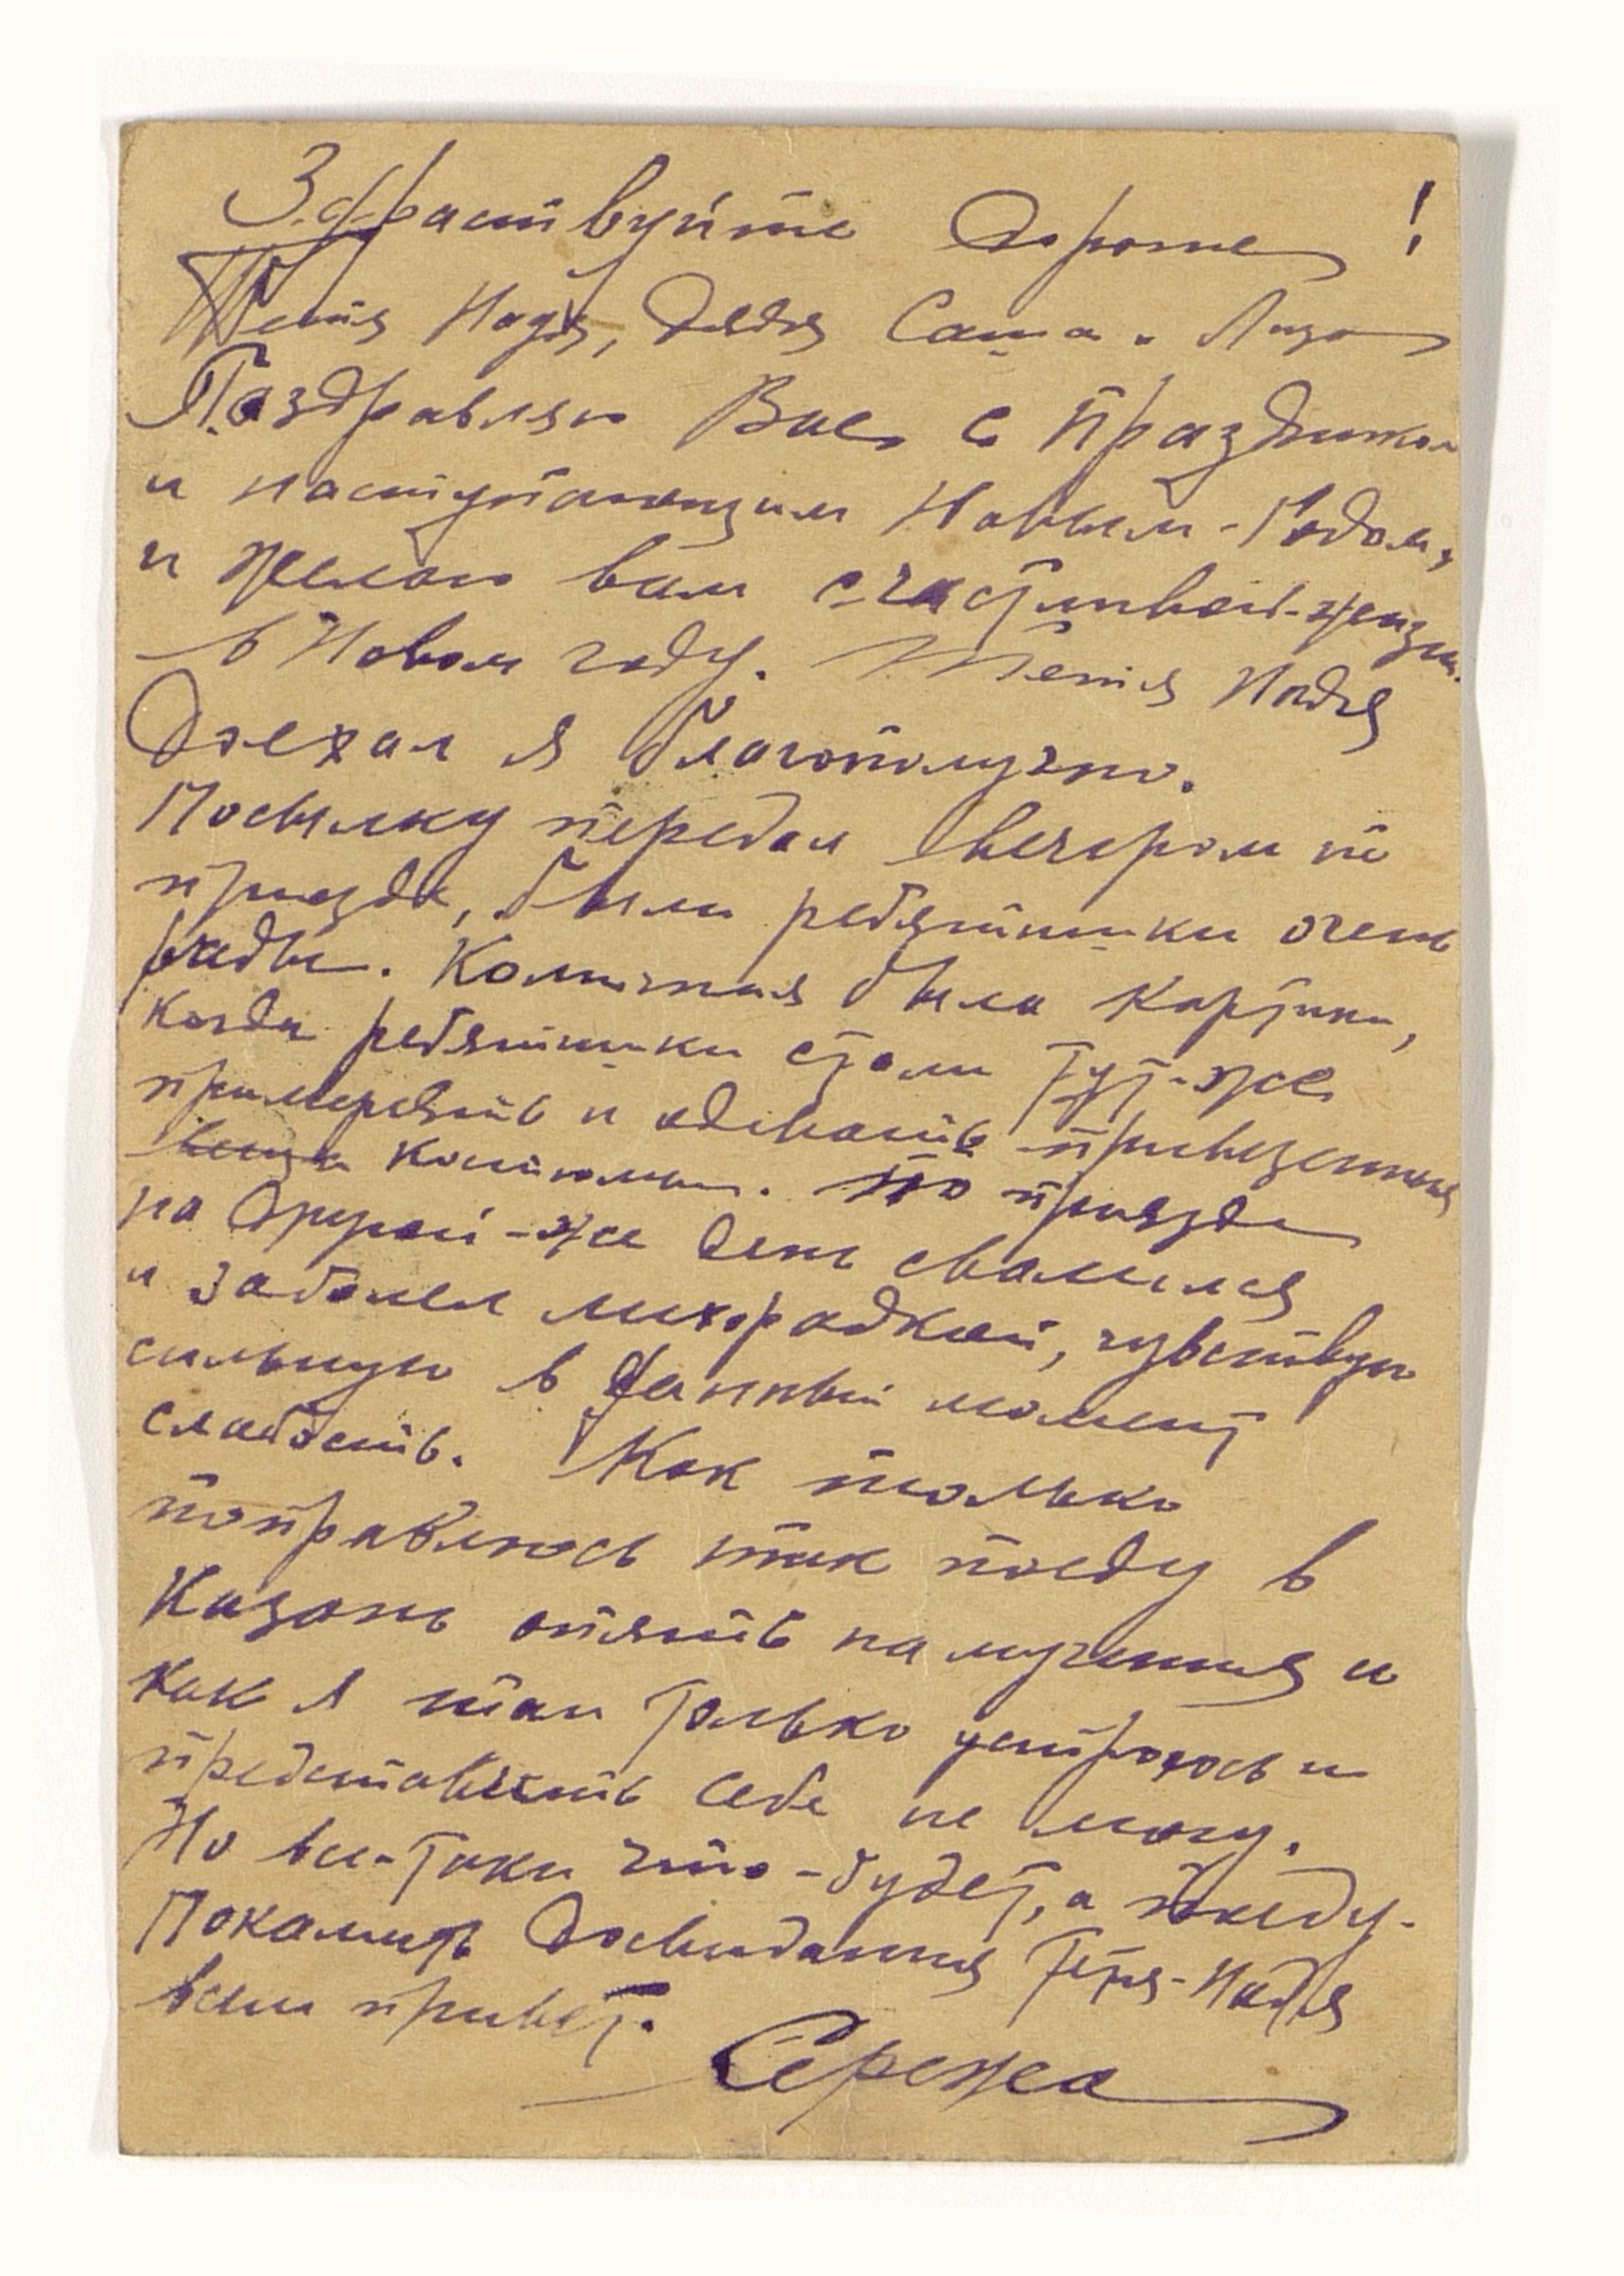 Здраствуйте Дорогие !
Тетя Надя, дядя Саша и Лиза
Паздравляю Вас с Праздником
и наступающим Новым-Годом,
и желаю вам счастливой-жизни.
в Новом году. Тетя Надя
Доехал я благополучно.
Посылку передал вечером по
приезде, были ребятишки очень
рады. Комичная была картина,
когда ребятишки стали тут-же
примерять и одевать привезенные
вещи костюмы. По приезде
на другой-же день свалился
и заболел лихорадкой, чувствую
сильную в данный момент
слабость. Как только
поправлюсь так поеду в
Казань опять на мучения и
как я там только устроюсь и
представить себе не могу.
Но все-таки что-будет, а поеду.
Покамест Досвидания тетя-Надя
всем привет.
Сережа